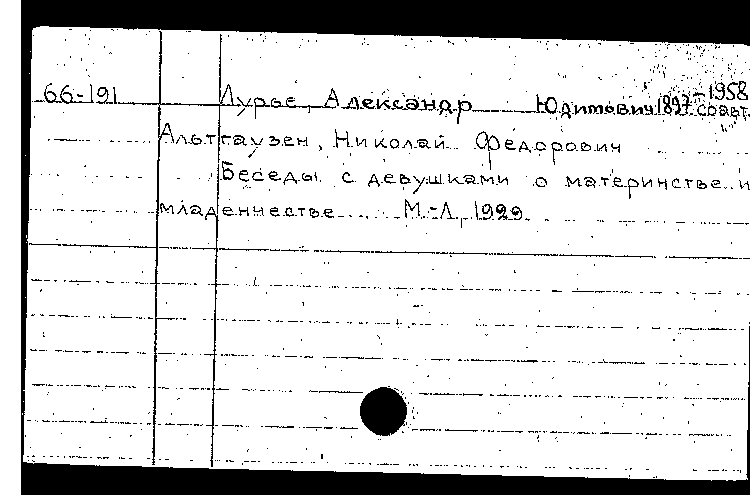 66-191 Лурье, Александр Юдимович 1897-1958 соавт.
Альтгаузен, Николай Федорович
Беседы с девушками о материнстве и
младенчестве М.-Л, 1929